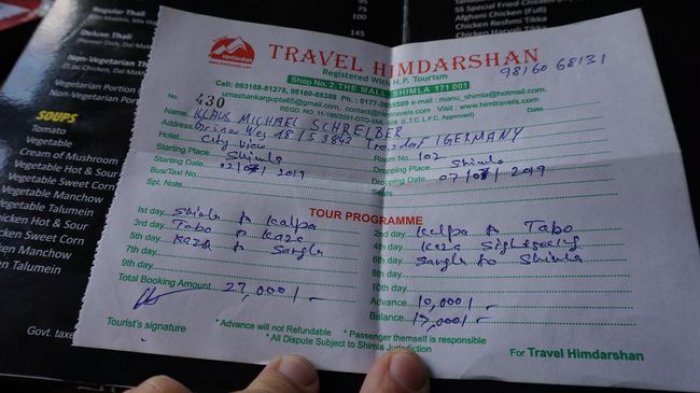 Regular Thali
Deluxe Thali
(Paneer Do, Dal M
Non-Vegetarian Tha
(1 pc Chicken, Dal Ma
Vegetarian Portion
Non-Vegetarian
SOUPS
Tomato
Vegetable
Cream of Mushroom
Vegetable Hot & Sour
Vegetable Sweet Corn
Vegetable Manchow
Vegetable Talumein
Chicken Hot & Sour
Chicken Sweet Corn
Chicken Manchow
Chicken Talumein
Govt. taxe
95
145
Afghani Chicken (Full)
Chicken Reshmi Tikka
TRAVEL HIMDARSHAN
Registered With H.P. Tourism
98160 68131
Shop No. 2, THE MALL, SHIMLA 171 001
Cell: 093188-81276, 98160-68388 Ph.: 0177-
e-mail : manu_shimla@hotmail.com,
umashankargupta65@gmail.com, contact@
Website: www.himtravels.com
(L.T.C, L.F.C. Approved)
No. 430
Name KLAUS MICHAEL SCHREIBER
Address
Troisdorf / GERMANY
Hotel City View Room No. 102
Starting Place Shimla Dropping Place Shimla
Starting Date 02/07/2019 Dropping Date 07/07/2019
Bus/Taxi No. Seats
Spl. Note
TOUR PROGRAMME
1st day Shimla to Kalpa 2nd day Kalpa to Tabo
3rd day Tabo to Kaza 4th day Kaza Sightseeing
5th day Kaza to Sangla 6th day Sangla to Shimla
7th day 8th day
9th day 10th day
Total Booking Amount 27,000/- Advance 10,000/-
Balance 17,000/-
Tourist's signature
* Advance will not Refundable * Passenger themself is responsible
* All Dispute Subject to Shimla Jurisdiction
For Travel Himdarshan